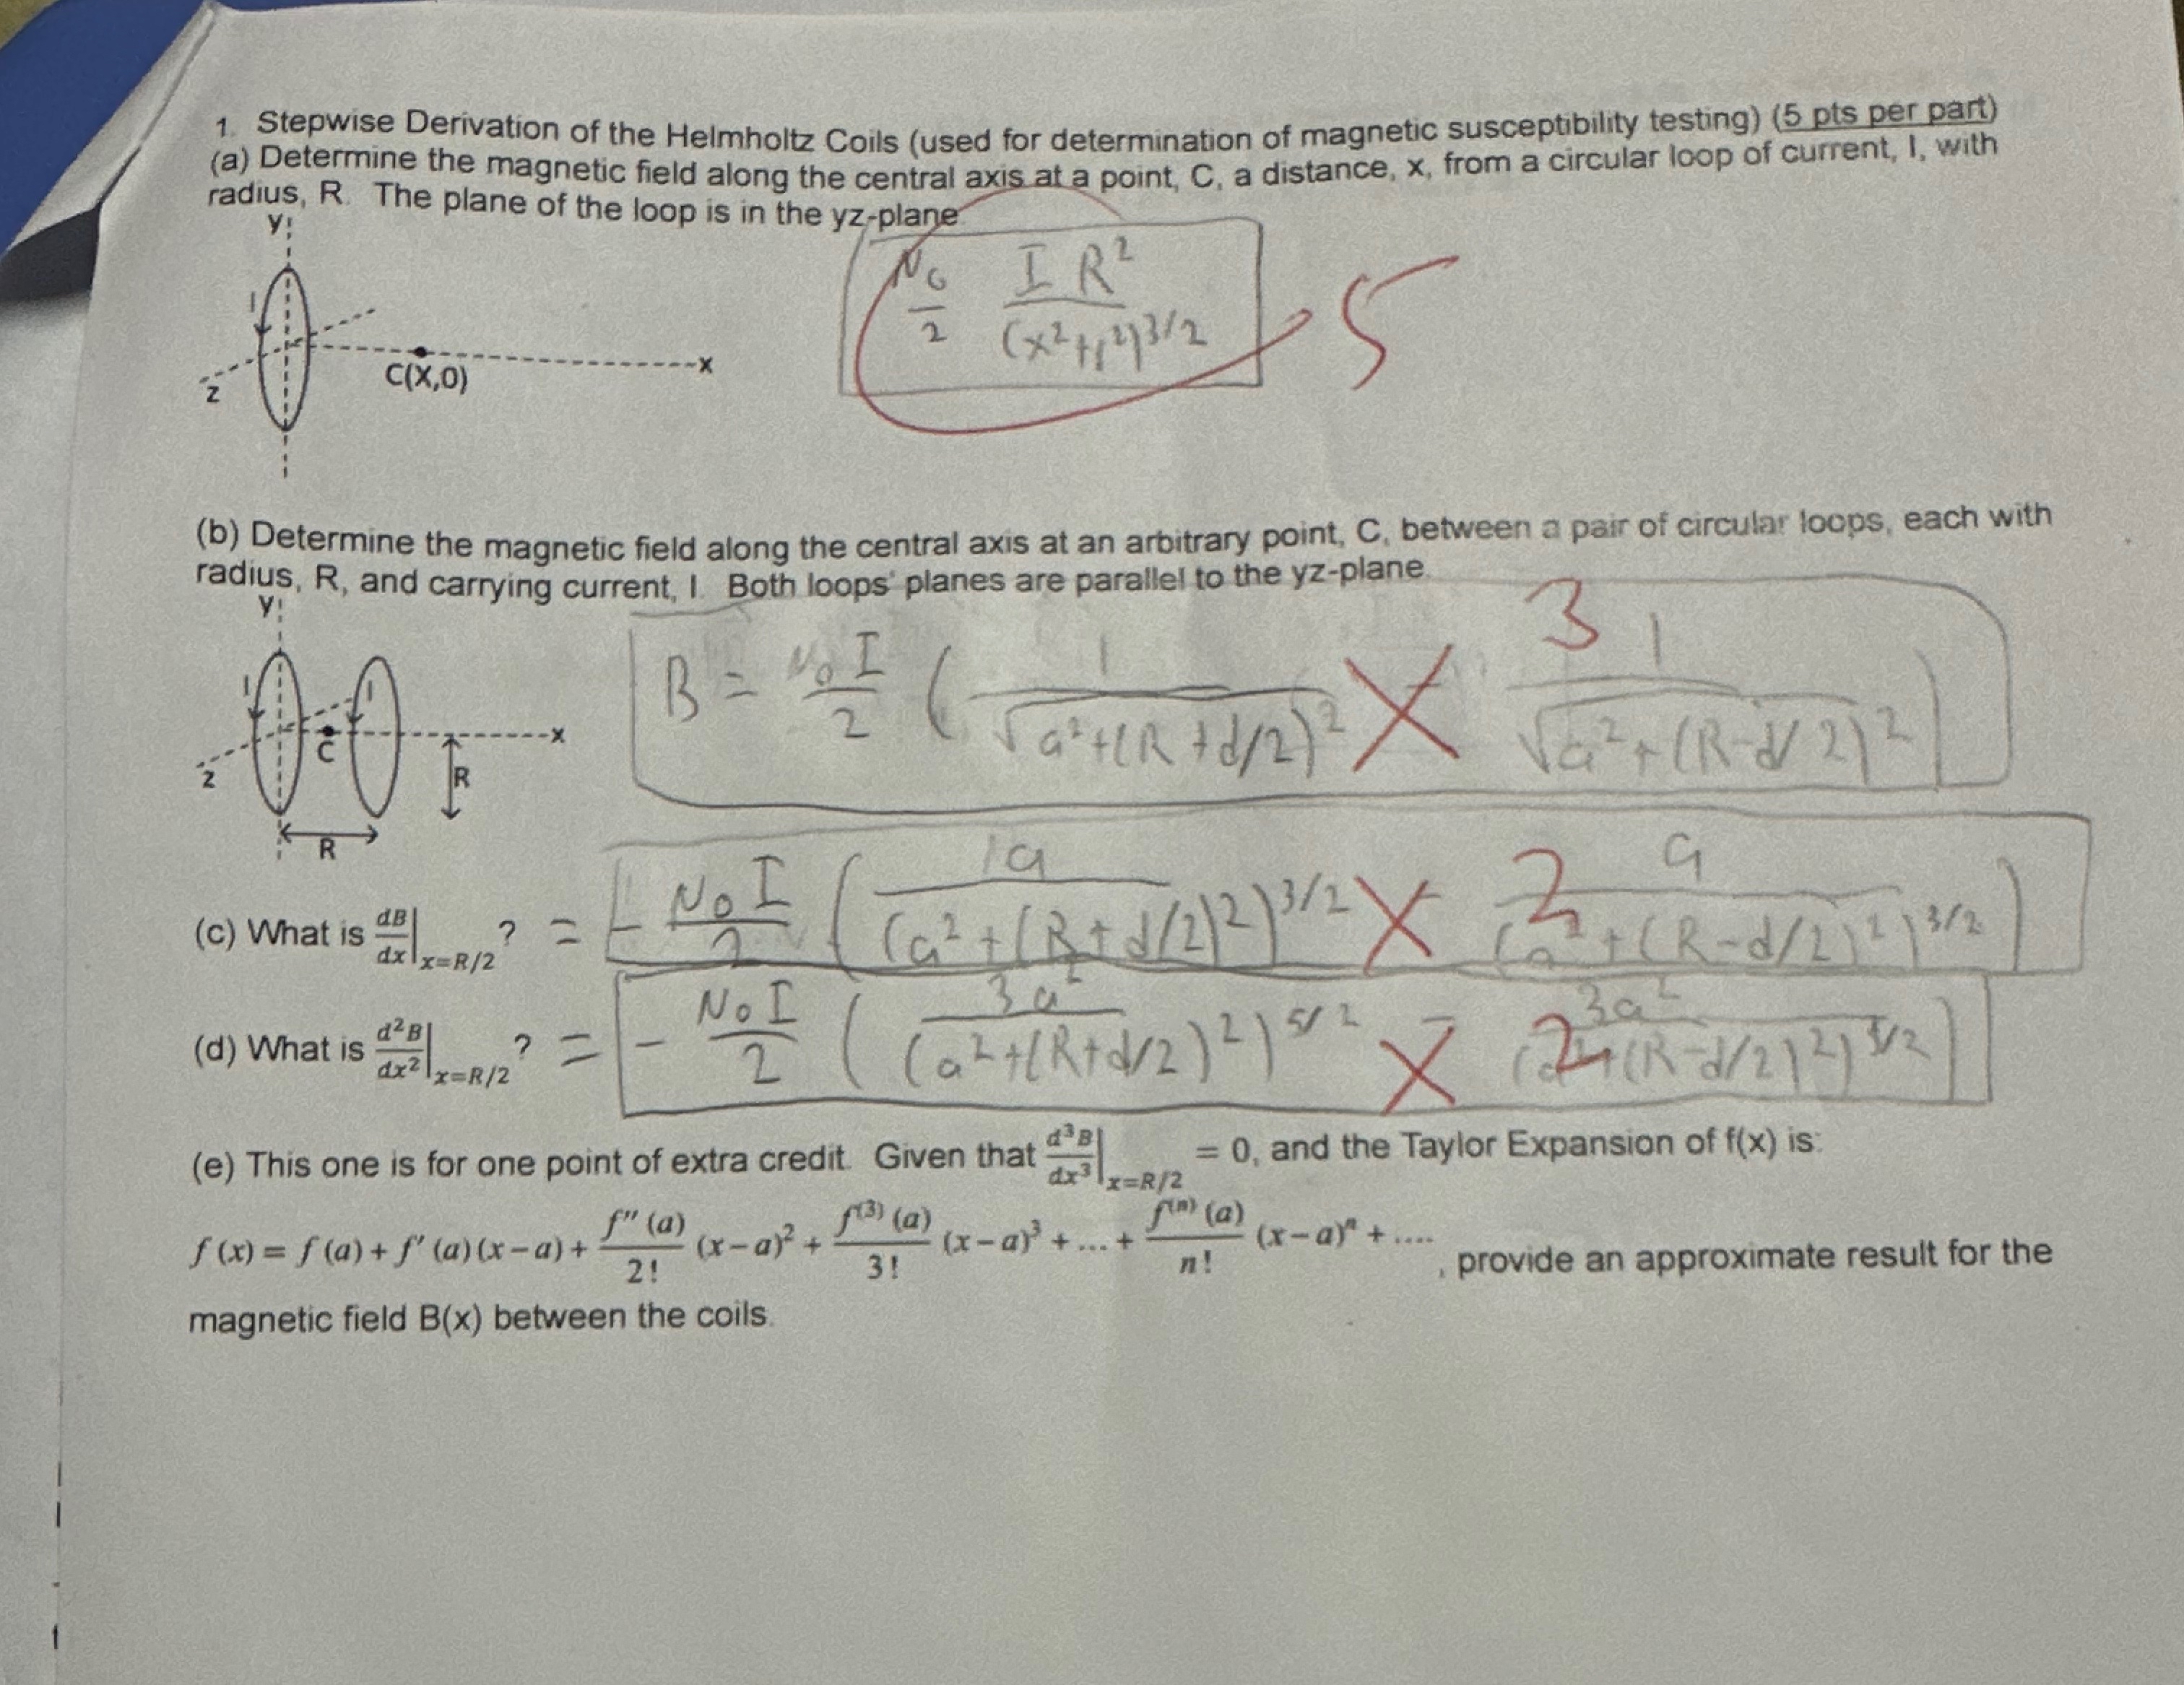 1. Stepwise Derivation of the Helmholtz Coils (used for determination of magnetic susceptibility testing) (5 pts per part)
(a) Determine the magnetic field along the central axis at a point, C, a distance, x, from a circular loop of current, I, with
radius, R. The plane of the loop is in the yz-plane
y
I
z
C(X,0)
x
N₀/2 I R²/(x²+r²)^3/2
5
(b) Determine the magnetic field along the central axis at an arbitrary point, C, between a pair of circular loops, each with
radius, R, and carrying current, I. Both loops' planes are parallel to the yz-plane.
y
I
I
z
C
x
R
R
B = N₀I/2 ( 1/√(a²+(R+d/2)²) - 1/√(a²+(R-d/2)²) )
3
(c) What is dB/dx|x=R/2 ? = - N₀I/2 ( 1a/(a²+(R+d/2)²)^3/2 - a/(a²+(R-d/2)²)^3/2 )
2
(d) What is d²B/dx²|x=R/2 ? = - N₀I/2 ( 3a²/(a²+(R+d/2)²)^5/2 - 3a²/(a²+(R-d/2)²)^5/2 )
2
(e) This one is for one point of extra credit. Given that d³B/dx³|x=R/2 = 0, and the Taylor Expansion of f(x) is:
f(x) = f(a) + f'(a)(x-a) + f''(a)/2! (x-a)² + f⁽³⁾(a)/3! (x-a)³ + ... + f⁽ⁿ⁾(a)/n! (x-a)ⁿ + .... , provide an approximate result for the
magnetic field B(x) between the coils.